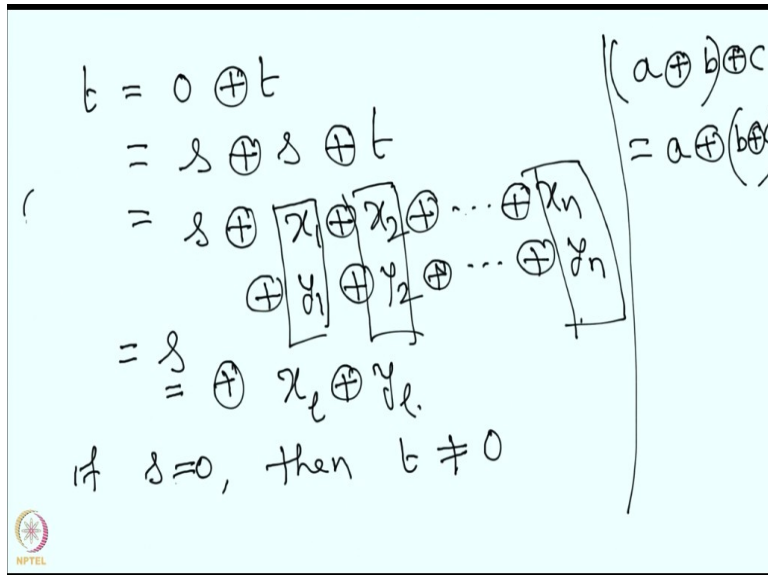 t = 0 ⊕ t
= s ⊕ s ⊕ t
= s ⊕ x₁ ⊕ x₂ ⊕ ... ⊕ xₙ
⊕ y₁ ⊕ y₂ ⊕ ... ⊕ yₙ
= s
= ⊕ xₗ ⊕ yₗ.
if s=0, then t ≠ 0
(a ⊕ b) ⊕ c
= a ⊕ (b ⊕ c)
NPTEL